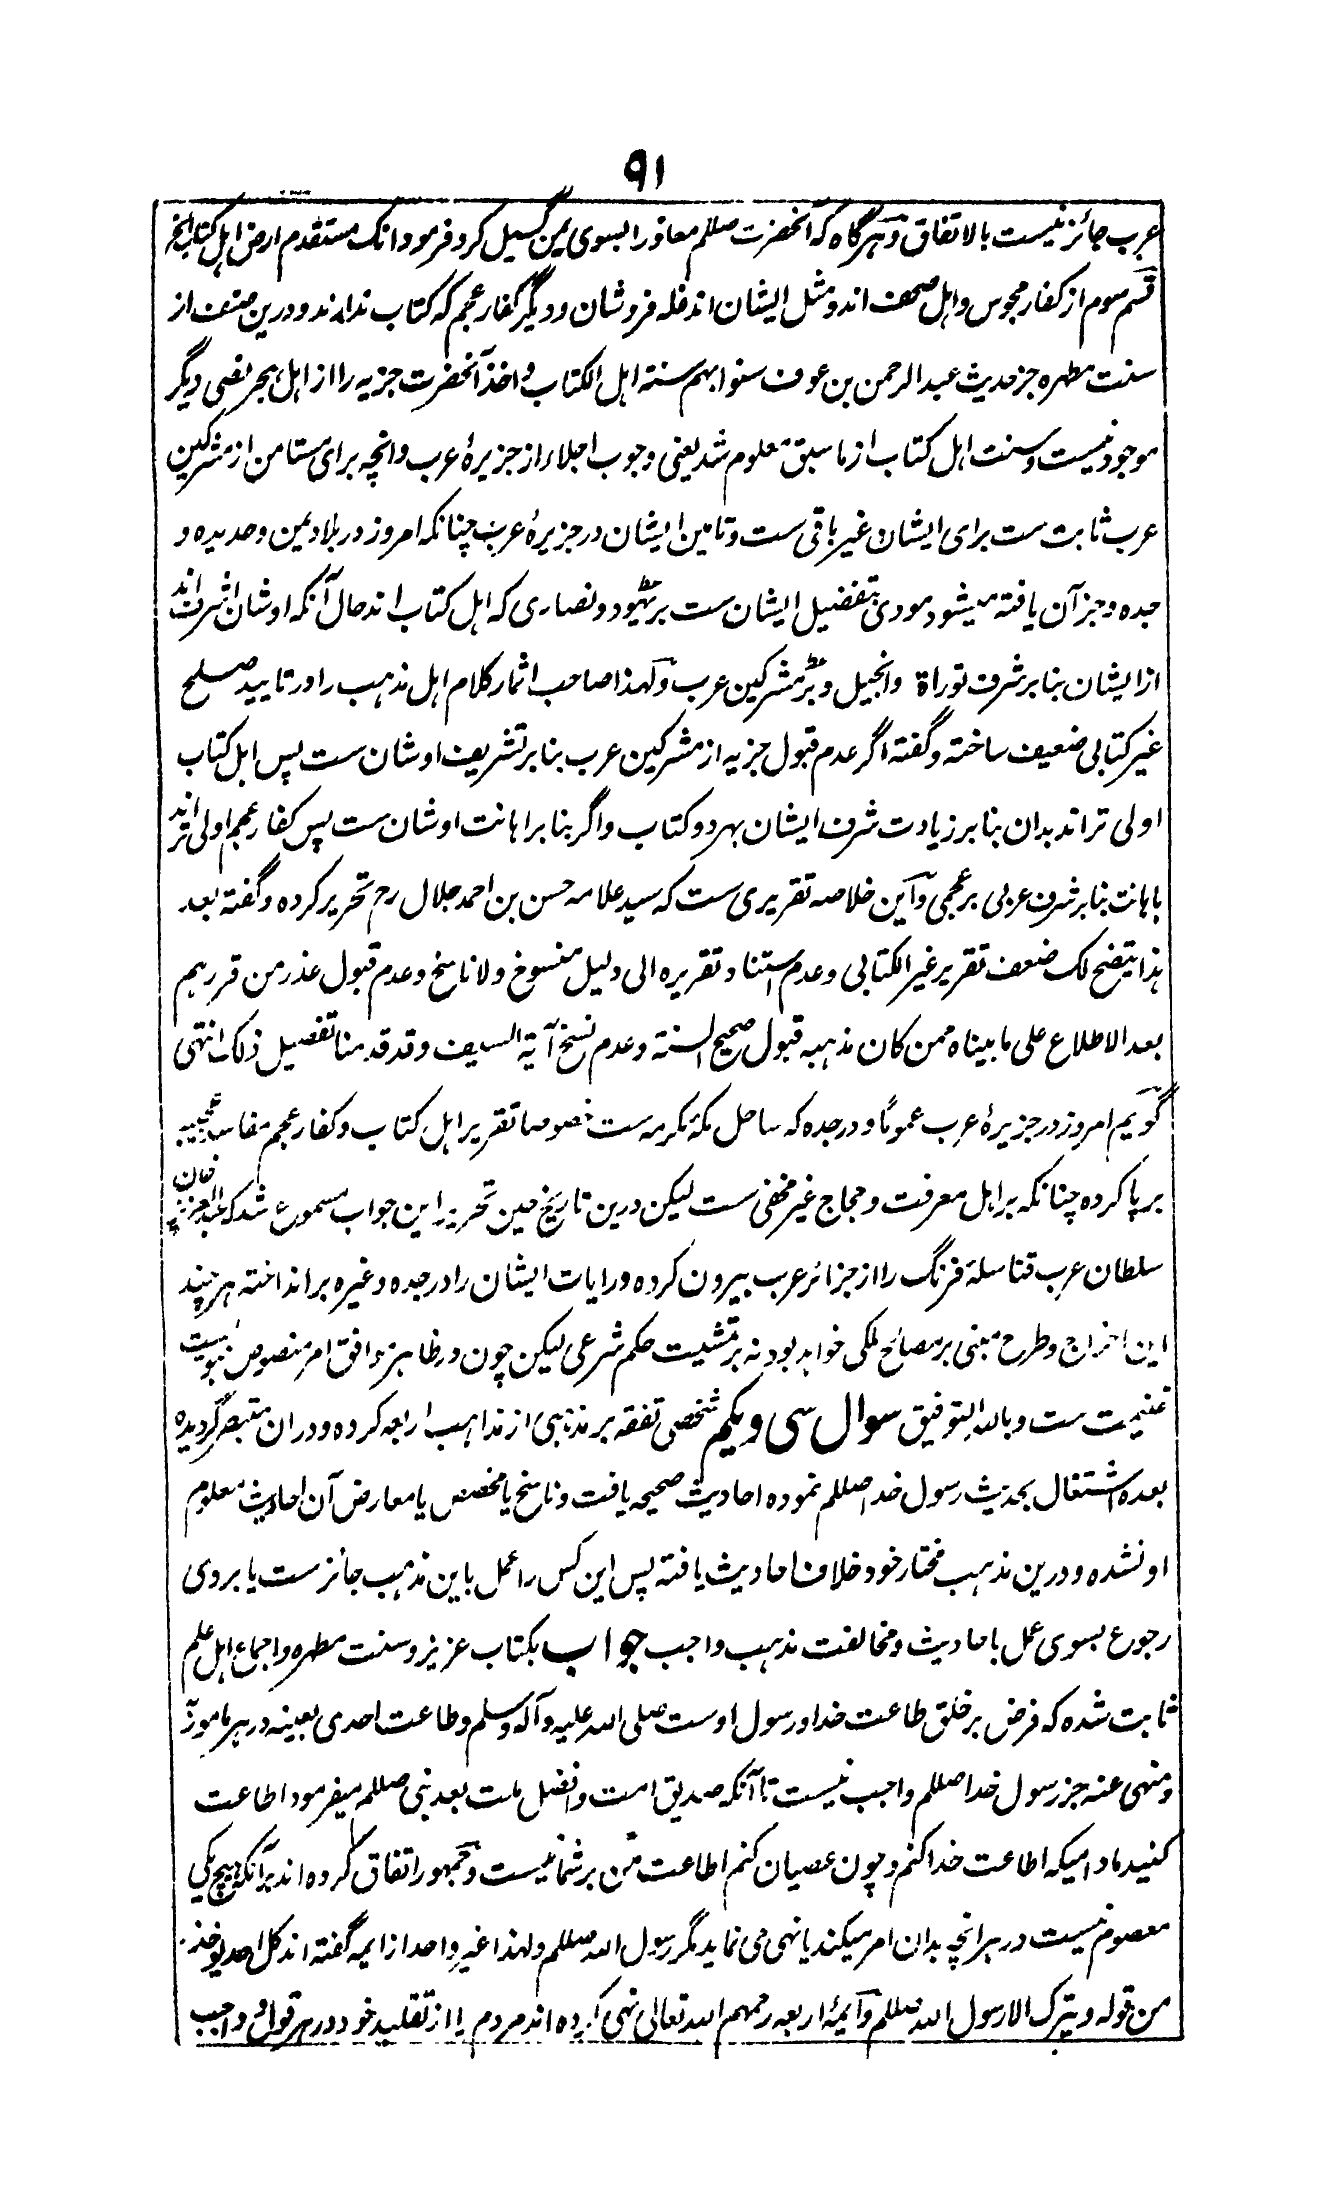 ۹۱
عرب جائز نیست بالاتفاق و هرگاه که آنحضرت صللم معاذ را بسوی یمن گسیل کرد فرمود انک ستقدم ارض اهل کتاب الخ
قسم سوم از کفار مجوس و اهل صحف اند و مثل ایشان اند غله فروشان و دیگر کفار عجم که کتاب ندارند و درین صنف از
سنت مطهره جز حدیث عبد الرحمن بن عوف سنوا بهم سنة اهل الکتاب و اخذ آنحضرت جزیه را از اهل هجر نصی دیگر
موجود نیست و سنت اهل کتاب از ما سبق معلوم شد یعنی وجوب اجلاء از جزیرۀ عرب و انچه برای مستامن از مشرکین
عرب ثابت ست برای ایشان غیر باقی ست و تامین ایشان در جزیرۀ عرب چنانکه امروز در بلاد یمن و حدیده و
جده و جز آن یافته میشود مودی بتفضیل ایشان ست بر یهود و نصاری که اهل کتاب اند حال آنکه اوشان اشرف اند
از ایشان بنابر شرف توراة وانجیل و بر مشرکین عرب و لهذا صاحب اثمار کلام اهل مذهب را در تایید صلح
غیر کتابی ضعیف ساخته و گفته اگر عدم قبول جزیه از مشرکین عرب بنابر تشریف اوشان ست پس اهل کتاب
اولی تر اند بدان بنابر زیادت شرف ایشان بهر دو کتاب و اگر بنابر اهانت اوشان ست پس کفار عجم اولی تر اند
باهانت بنابر شرف عربی بر عجمی و این خلاصه تقریری ست که سید علامه حسن بن احمد جلال رح تحریر کرده و گفته بعد
هذا یتضح لک ضعف تقریر غیر الکتابی و عدم استناد تقریره الی دلیل منسوخ و لا ناسخ و عدم قبول عذر من قررهم
بعد الاطلاع علی ما بیناه ممن کان مذهبه قبول صحیح السنة و عدم نسخ آیة السیف و قد قدمنا تفصیل ذلک انتهی
گویم امروز در جزیرۀ عرب عموماً و در جده که ساحل مکۀ مکرمه ست خصوصا تقریر اهل کتاب و کفار عجم مفاسد عجیبه
برپا کرده چنانکه بر اهل معرفت و حجاج غیر مخفی ست لیکن درین تاریخ حین تحریر این جواب مسموع شد که عبد العزیز خان
سلطان عرب قناسلۀ فرنگ را از جزائر عرب بیرون کرده و رایات ایشان را در جده و غیره بر انداخته هر چند
این اخراج و طرح مبنی بر مصالح ملکی خواهد بود نه بر تمشیت حکم شرعی لیکن چون در ظاهر موافق امر منصوص نبویست
غنیمت ست و بالله التوفیق سوال سی و یکم شخصی تفقه بر مذهبی از مذاهب اربعه کرده و دران متبصر گردیده
بعده اشتغال بحدیث رسول خدا صللم نموده احادیث صحیحه یافت و ناسخ یا مخصص یا معارض آن احادیث معلوم
او نشده و درین مذهب مختار خود خلاف احادیث یافته پس این کس را عمل باین مذهب جائز ست یا بروی
رجوع بسوی عمل باحادیث و مخالفت مذهب واجب جواب بکتاب عزیز و سنت مطهره و اجماع اهل علم
ثابت شده که فرض بر خلق طاعت خدا و رسول اوست صلی الله علیه و آله و سلم و طاعت احدی بعینه در هر مامور به
و منهی عنه جز رسول خدا صللم واجب نیست تا آنکه صدیق امت و افضل ملت بعد نبی صللم میفرمود اطاعت
کنید مادامیکه اطاعت خدا کنم و چون عصیان کنم اطاعت من بر شما نیست و جمهور اتفاق کرده اند بر آنکه هیچ یکی
معصوم نیست در هر انچه بدان امر میکند یا نهی می نماید مگر رسول الله صللم و لهذا غیر واحد از ایمه گفته اند کل احد یوخذ
من قوله و یترک الا رسول الله صللم و ایمۀ اربعه رحمهم الله تعالی نهی کرده اند مردم را از تقلید خود در هر قول و واجب